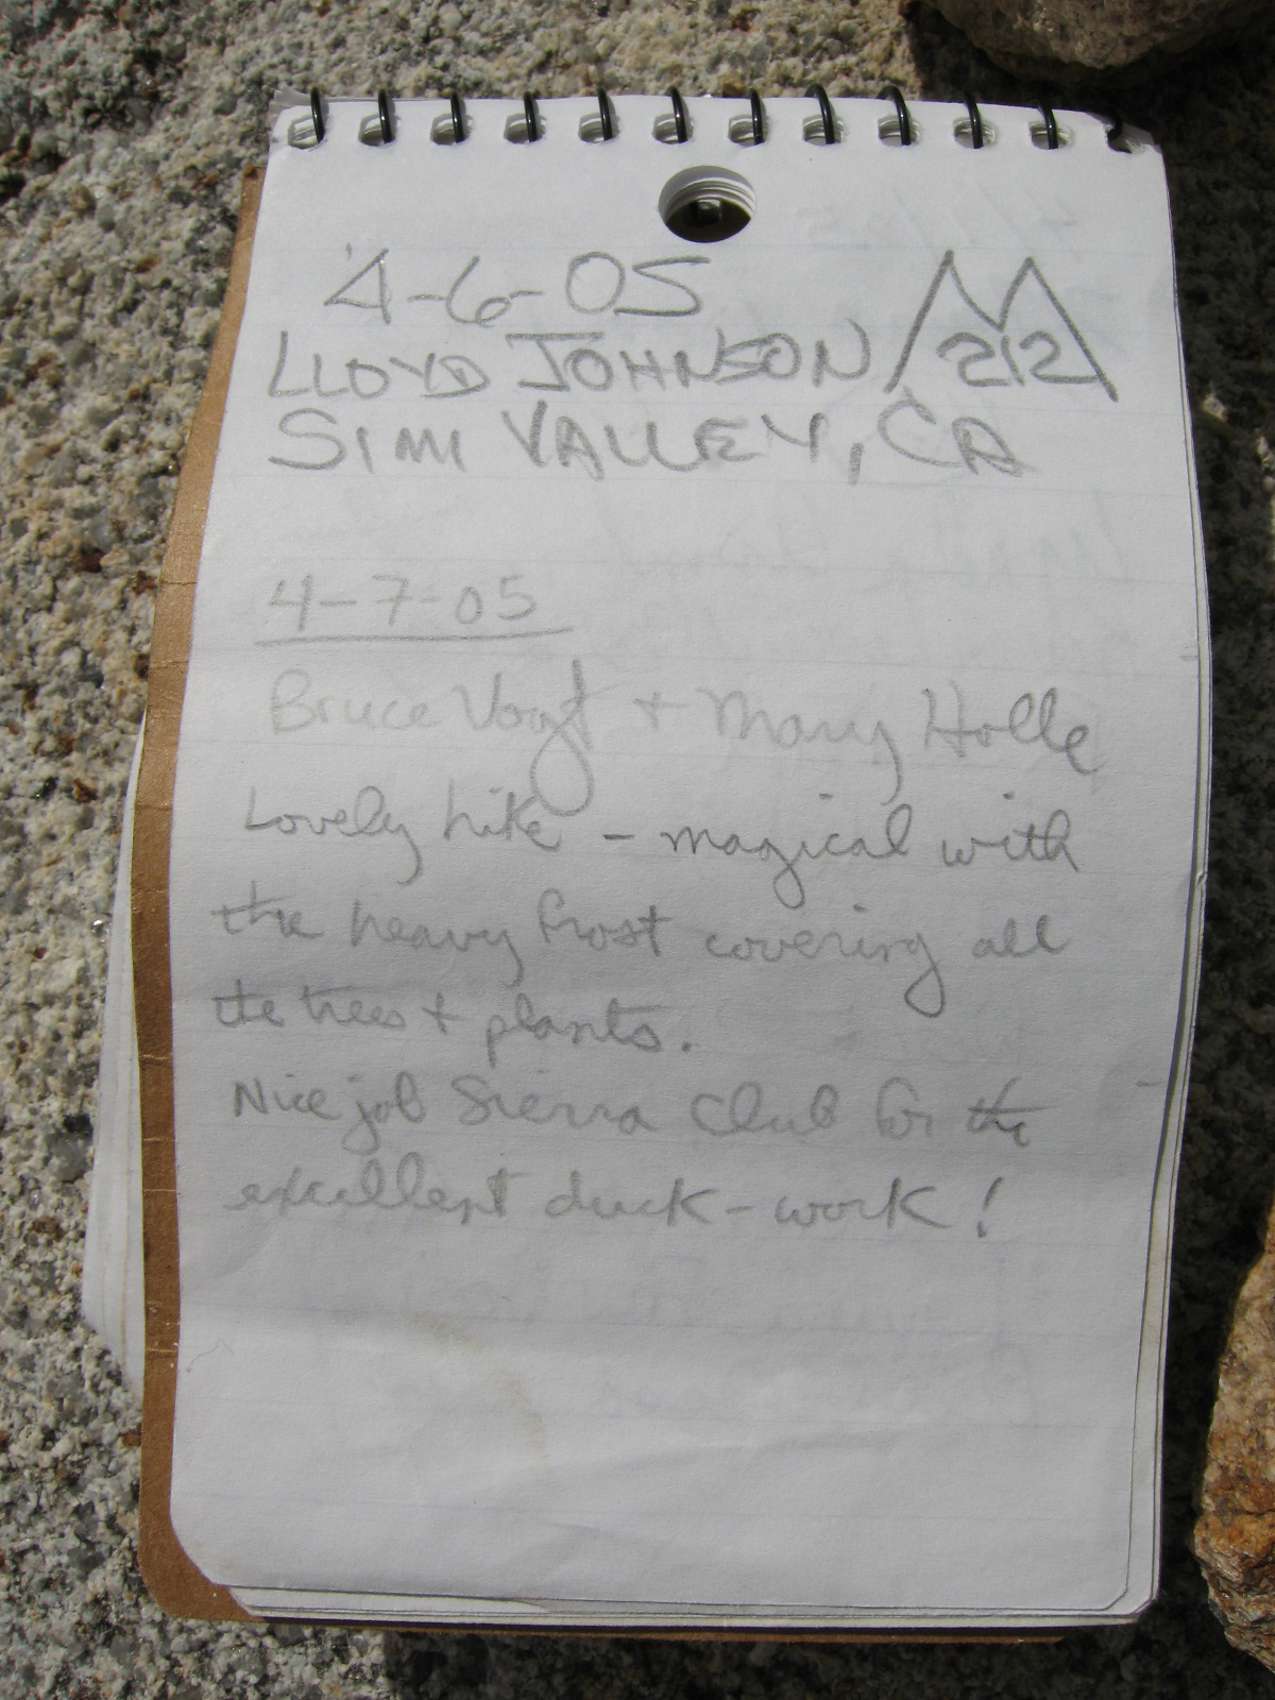 4-6-05
LLOYD JOHNSON 212
SIMI VALLEY, CA
4-7-05
Bruce Vogt + Mary Holle
Lovely hike - magical with
the heavy frost covering all
the trees + plants.
Nice job Sierra Club for the
excellent duck-work!